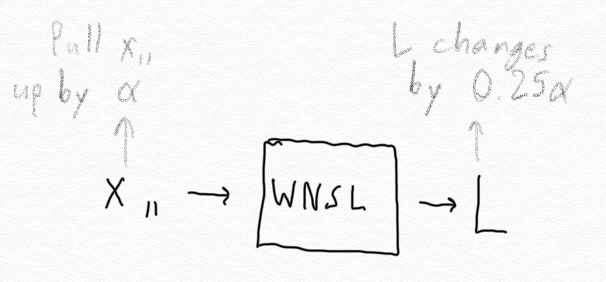 Pull x₁₁
up by α
L changes
by 0.25α
X₁₁ → WNSL → L